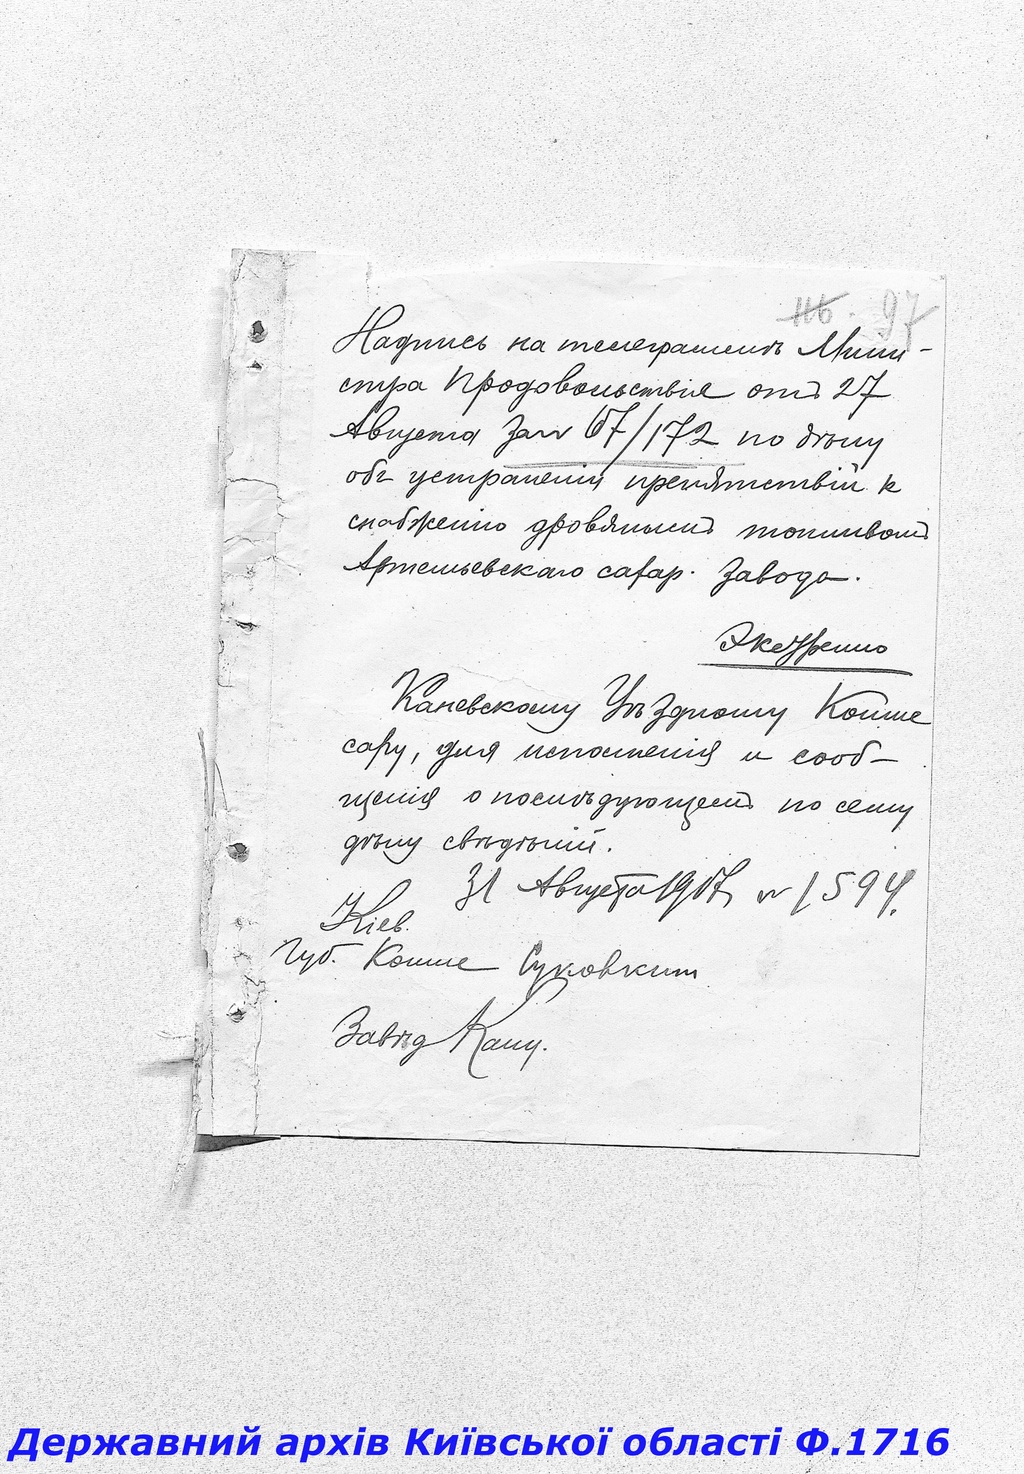 97
Надпись на телеграммѣ Мини-
стра Продовольствія отъ 27
Августа за № 67/172 по дѣлу
объ устраненіи препятствій к
снабженію дровянымъ топливомъ
Артемьевскаго сахар. завода.
Экстренно
Каневскому Уѣздному Комис
сару, для исполненія и сооб-
щенія о послѣдующемъ по сему
дѣлу свѣдѣній.
31 Августа 1917 № 1594.
Кіев.
Губ. Комис Суковкин
Завѣд Канц.
Державний архів Київської області Ф.1716